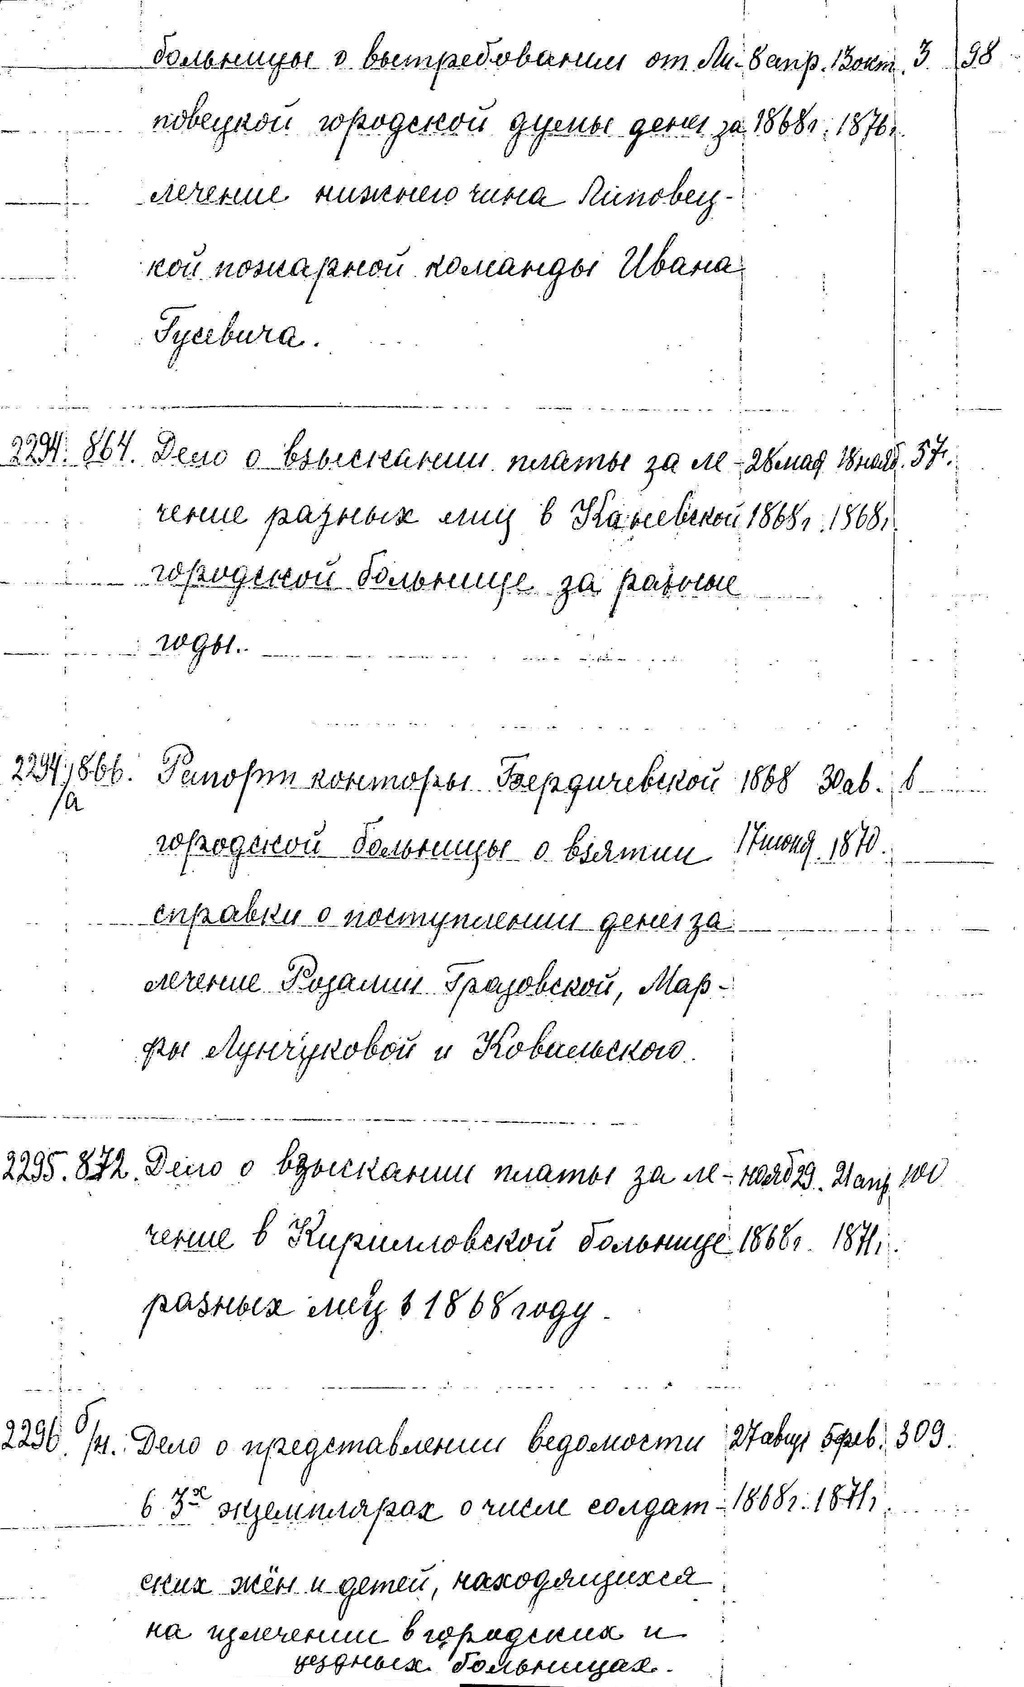 больницы о вытребовании от Ли- 8 апр. 13 окт. 3 98
повецкой городской думы денег за 1868г. 1876г.
лечение нижнего чина Липовец-
кой пожарной команды Ивана
Гусевича.
2294. 864. Дело о взыскании платы за ле- 28 мая 18 нояб. 57.
чение разных лиц в Каневской 1868г. 1868г.
городской больнице за разные
годы.
2294/а 866. Рапорт конторы Бердичевской 1868 30 ав. 6
городской больницы о взятии 17 июня 1870.
справки о поступлении денег за
лечение Розалии Гразовской, Мар-
фы Лунчуковой и Ковальского.
2295. 872. Дело о взыскании платы за ле- нояб 29. 21 апр 100
чение в Кирилловской больнице 1868г. 1871г.
разных лиц в 1868 году.
2296. б/н. Дело о представлении ведомости 27 авгус 5 фев. 309.
в 3х экземплярах о числе солдат- 1868г. 1871г.
ских жён и детей, находящихся
на излечении в городских и
уездных больницах.